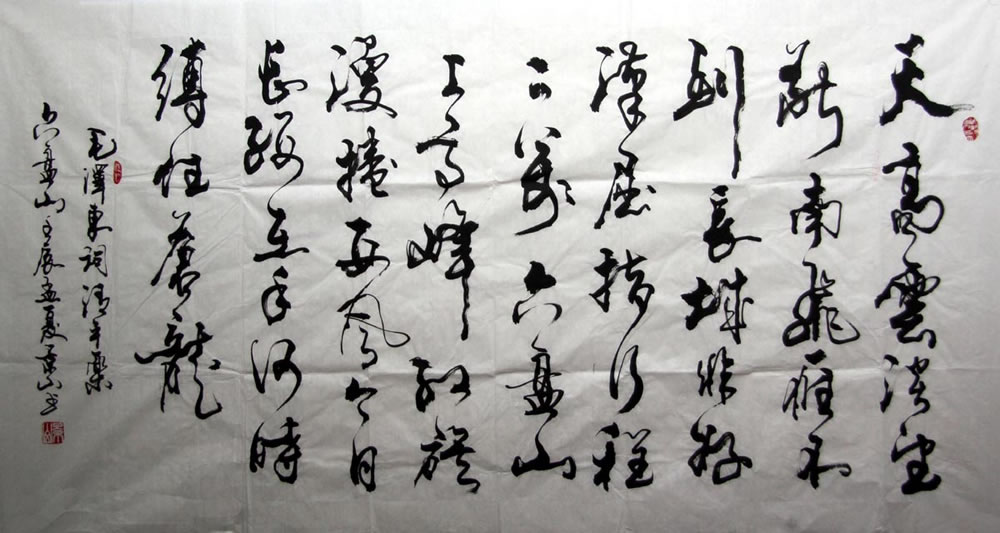 天高雲淡望
斷南飛雁不
到長城非好
漢屈指行程
二萬六盘山
上高峰紅旗
漫捲西風今日
長纓在手何時
縛住蒼龍
毛澤東詞清平樂
六盘山壬辰孟夏山书